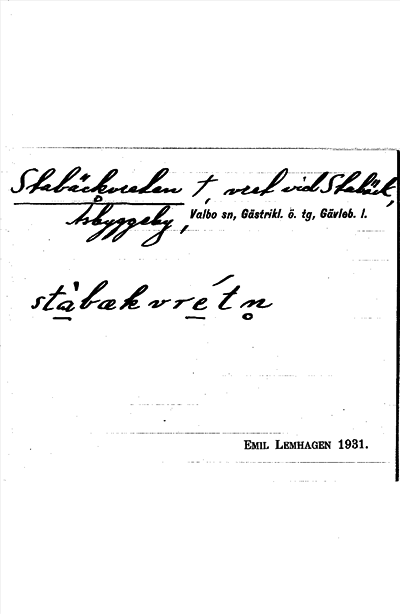 Stabäckvreten †, vret vid Stabäck,
Åsbyggeby, Valbo sn, Gästrikl. ö. tg, Gävleb. l.
stàbækvrétn̥
EMIL LEMHAGEN 1931.